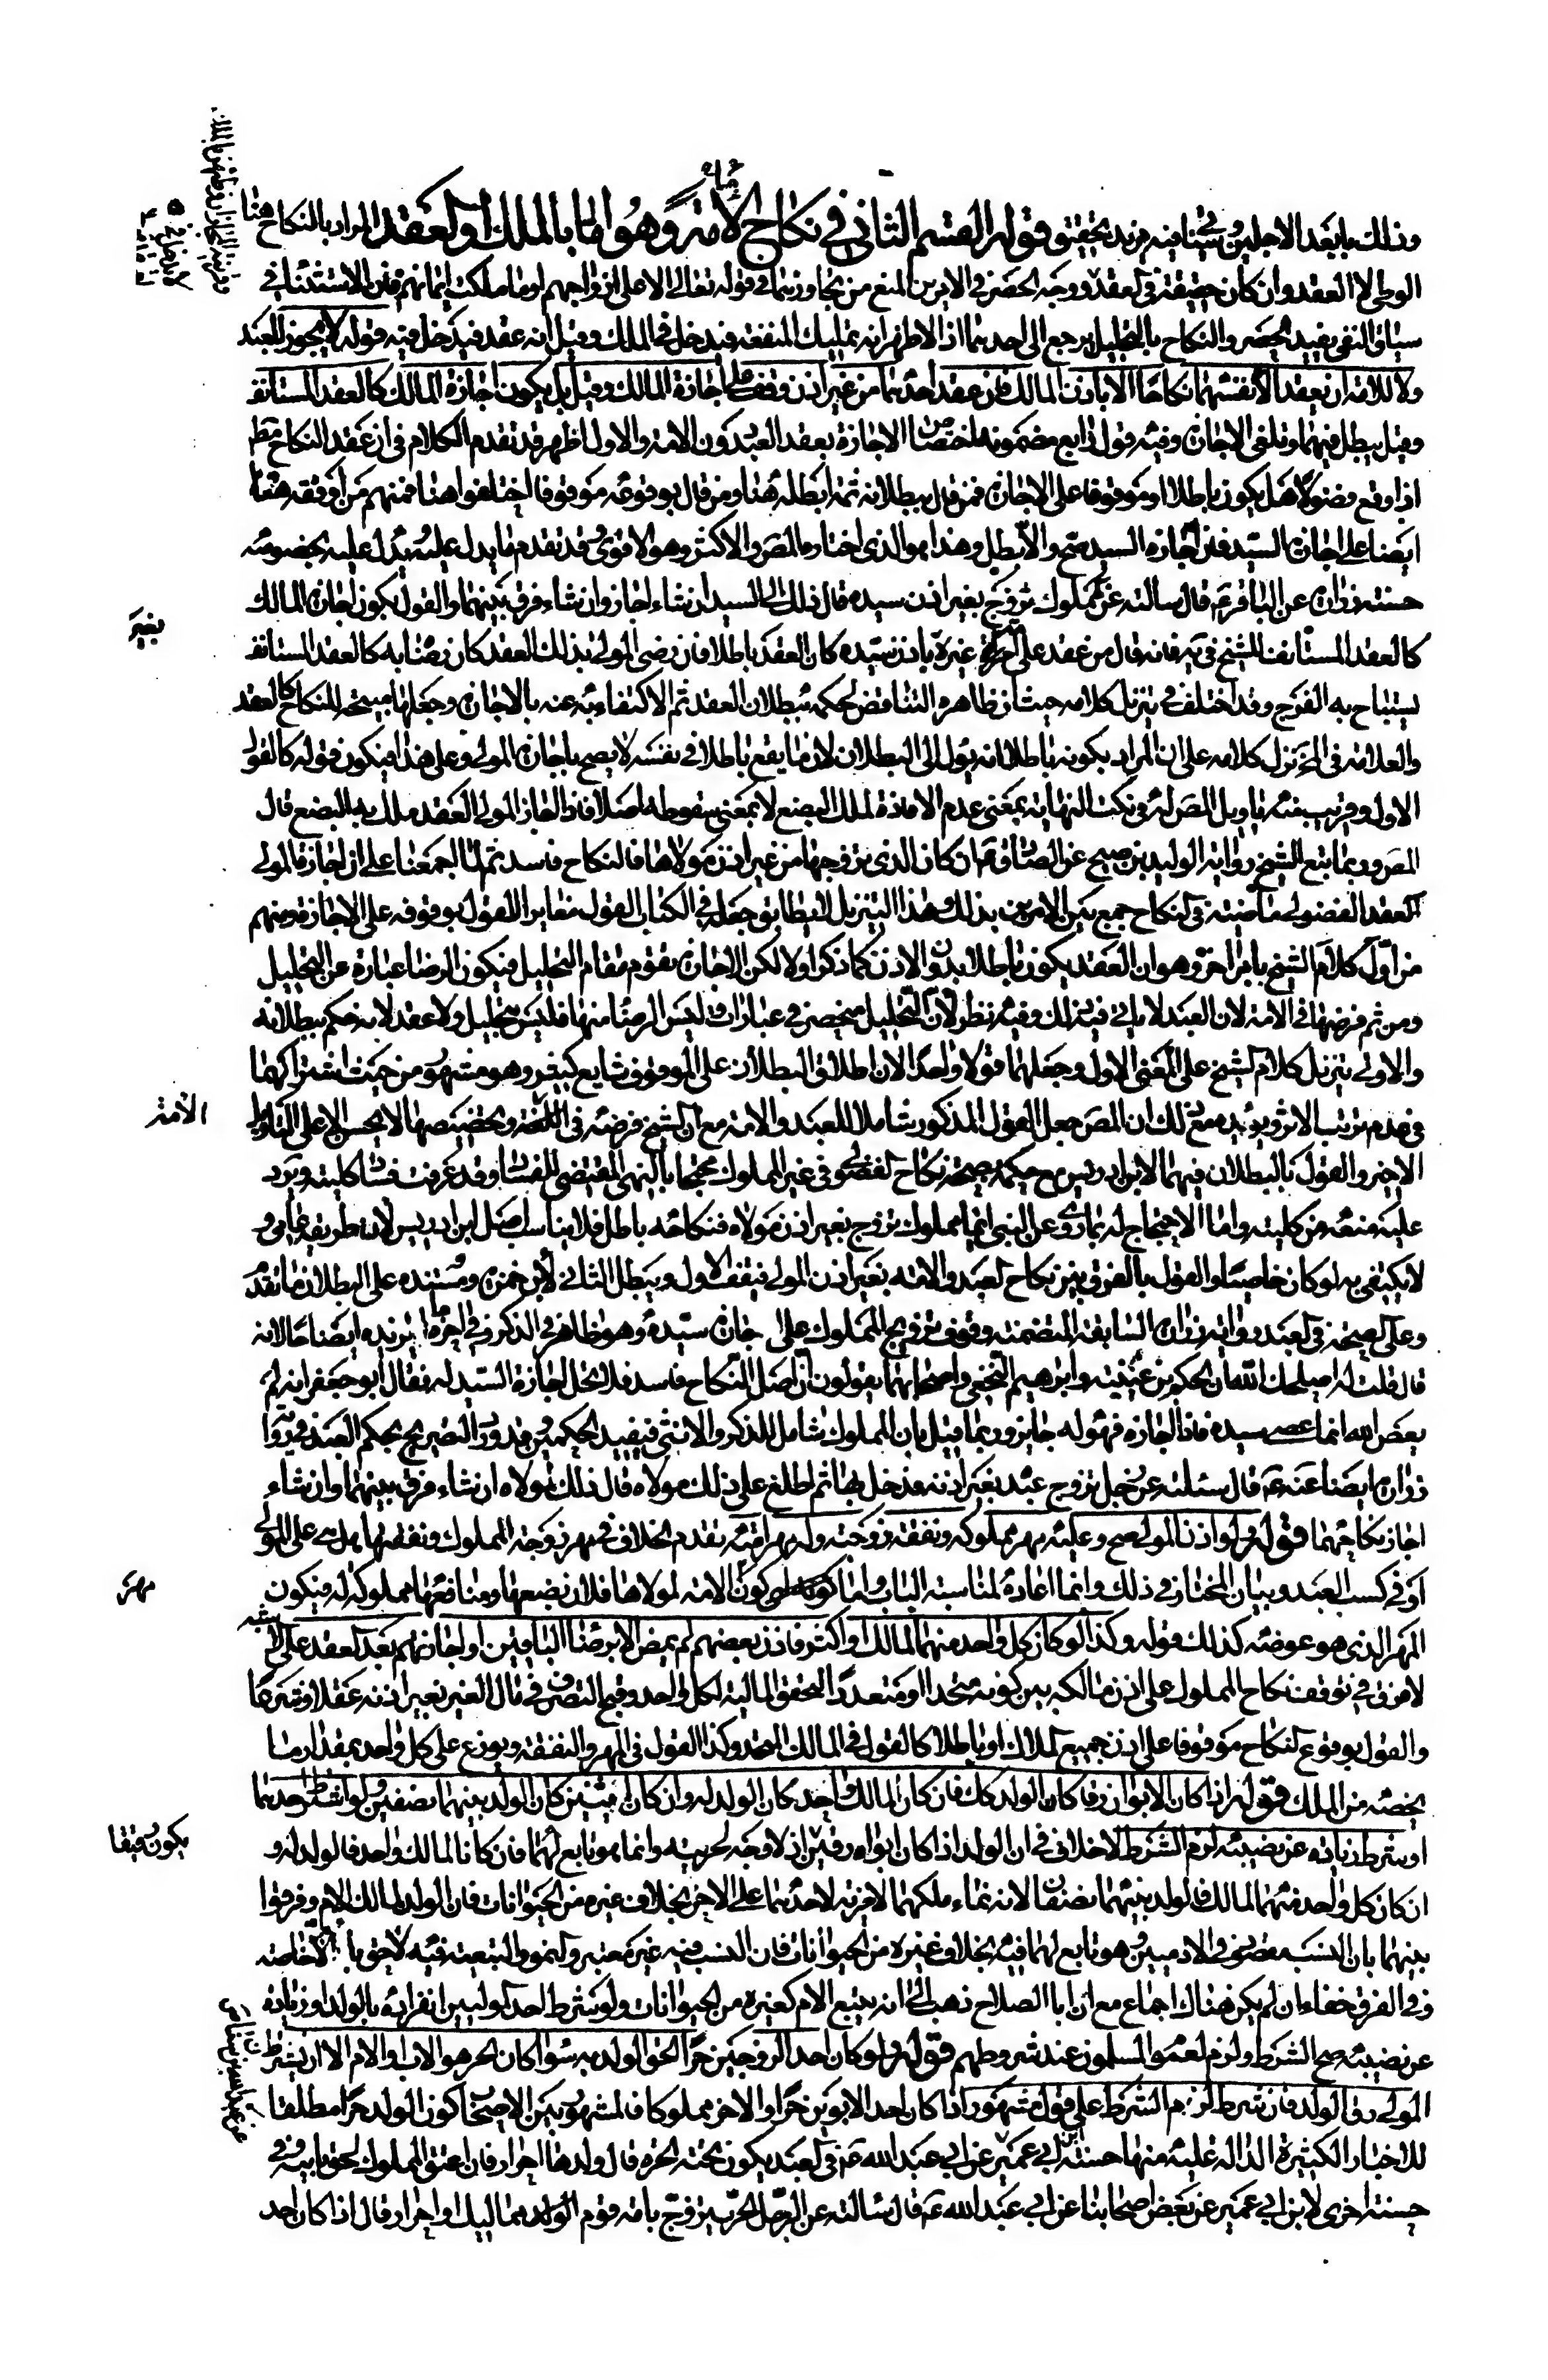 وذلك بابعد الاجلين وسيأتي فيه مزيد تحقيق قوله القسم الثاني في نكاح الاماء وهو اما بالملك او العقد المراد بالنكاح هنا
الوطي لا العقد وان كان حقيقة في العقد ووجه الحصر في الامرين المنع من تجاوزهما في قوله تعالى الا على ازواجهم او ما ملكت ايمانهم فان الاستثناء في
سياق النفي يفيد الحصر والنكاح بالتحليل يرجع الى احدهما اذ الاظهر انه تمليك المنفعة فيدخل في الملك وقيل انه عقد فيدخل فيه قوله لا يجوز للعبد
ولا للامة ان يعقدا لانفسهما نكاحا الا باذن المالك فان عقد احدهما من غير اذن وقف على اجازة المالك وقيل بل يكون اجازة المالك كالعقد المستانف
وقيل يبطل فيهما وتلغى الاجازة وفيه قول رابع مضمونه اختصاص الاجازة بعقد العبد دون الامة والاول اظهر قد تقدم الكلام في ان عقد النكاح مطر
اذا وقع فضولا هل يكون باطلا او موقوفا على الاجازة فمن قال ببطلانه ثمة ابطله هنا ومن قال بوقوعه موقوفا اختلفوا هنا فمنهم من اوقفه هنا
ايضا على اجازة السيد فان اجازه السيد صح والا بطل وهذا هو الذي اختاره المصر والاكثر وهو الاقوى وقد تقدم ما يدل عليه ويدل عليه بخصوصه
حسنة زرارة عن الباقر ع قال سالته عن مملوك تزوج بغير اذن سيده قال ذلك الى السيد ان شاء اجاز وان شاء فرق بينهما والقول بكون اجازة المالك
كالعقد المستانف للشيخ في يه فانه قال من عقد على امة غيره باذن سيده كان العقد باطلا فان رضى المولى بذلك العقد كان رضاه به كالعقد المستانف
بغير
يستباح به الفرج وقد اختلف في تنزيل كلامه حيث ان ظاهره التناقض لحكمه ببطلان العقد ثم الاكتفاء به عنه بالاجازة وجعلها مبيحة للنكاح كالعقد
والعلامة في المخ نزل كلامه على ان المراد بكونه باطلا انه يؤل الى البطلان لان ما يقع باطلا في نفسه لا يصح باجازة المولى وعلى هذا فيكون قوله كالقول
الاول وقريب منه تاويل المصر له في نكت النهاية بمعنى عدم الافادة لملك البضع لا بمعنى سقوطه اصلا فاذا اجاز المولى العقد ملك به البضع قال
المصر وربما تبع الشيخ رواية الوليد بن صبيح عن الصادق ع ان كان الذي تزوجها من غير اذن مولاها فالنكاح فاسد ثم لما اجمعنا على ان اجازة المولى
العقد الفضولي ماضية في النكاح جمع بين الامرين بذلك وهذا التنزيل لا يطابق جعله في الكتاب القول مغايرا للقول بوقوفه على الاجازة ومنهم
من اول كلام الشيخ بامر اخر وهو ان العقد يكون باطلا بدون الاذن كما ذكر اولا لكن الاجازة تقوم مقام التحليل فيكون الرضا عبارة عن التحليل
ومن ثم فرضها في الامة لان العبد لا ياتي فيه ذلك وفيه نظر لان التحليل منحصر في عبارات وليس الرضا منها فليس بتحليل ولا عقد لانه حكم ببطلانه
والاولى تنزيل كلام الشيخ على المعنى الاول وجعلهما قولا واحدا لان اطلاق البطلان على الموقوف شايع كثير وهو مشهور من حيث اشتراكهما
في عدم ترتب الاثر ويؤيده مع ذلك ان المصر جعل القول المذكور شاملا للعبد والامة مع ان الشيخ فرضه في الامة وتخصيصها لا يحسن الا على التاويل
الامة
الاخير والقول بالبطلان فيهما لابن ادريس مع حكمه بصحة نكاح الفضولي في غير المملوك محتجا بالنهي المقتضي للفساد وقد عرفت فساد كليته ويرد
عليه منعه من كليته واما الاحتجاج له بما روي عن النبي ايما مملوك تزوج بغير اذن مولاه فنكاحه باطل فلا يناسب اصل ابن ادريس لان طريقه عامي و
لا يكتفى به لو كان خاصيا والقول بالفرق بين نكاح العبد والامة بغير اذن المولى فيقف الاول ويبطل الثاني لابن حمزة ومستنده على البطلان ما تقدم
وعلى الصحة في العبد رواية زرارة السابقة المتضمنة وقوف تزويج المملوك على اجازة سيده وهو ظاهر في الذكر وفي اخرها ما يرشده ايضا حالانه
قال قلت له اصلحك الله ان الحكم بن عتيبة وابرهيم النخعي واصحابهما يقولون ان اصل النكاح فاسد فلا تحل اجازة السيد له فقال ابو جعفر انه لم
يعص الله انما عصى سيده فاذا اجازه فهو له جايز وربما قيل بان المملوك شامل للذكر والانثى فيفيد الحكم من وورد التصريح بحكم العبد في روا
زرارة ايضا عنه ع قال سئلته عن رجل تزوج عبده بغير اذنه فدخل بها ثم اطلع على ذلك مولاه قال ذلك لمولاه ان شاء فرق بينهما وان شاء
اجاز نكاحهما قوله ولو اذن المولى صح وعليه مهر مملوكه ونفقة زوجته وله مهر امته تقدم الخلاف في مهر زوجة المملوك ونفقتها هل هي على المولى
او في كسب العبد وبيان المختار في ذلك وانما اعاده لمناسبة الباب واما كون الامة لمولاها فلان بضعها ومنافعها مملوكة له فيكون
مهر
المهر الذي هو عوضه كذلك قوله وكذا لو كان كل واحد منهما لمالك او اكثر فاذن بعضهم لم يمض الا برضا الباقين او اجازتهم بعد العقد على الاشبه
لا فرق في توقف نكاح المملوك على اذن مالكه بين كونه متحدا او متعددا لتحقق المالية لكل واحد وقبح التصرف في مال الغير بغير اذنه عقلا وشرعا
والقول بوقوع النكاح موقوفا على اذن جميع الملاك او باطلا كالقول في المالك المتحد وكذا القول في المهر والنفقة ويوزع على كل واحد بمقدار ما
يخصه من الملك قوله اذا كان الابوان رقا كان الولد كك فان كان المالك واحد كان الولد له وان كان اثنين كان الولد بينهما نصفين ولو اشترط احدهما
او شرط زيادة عن نصيبه لزم الشرط لا خلاف في ان الولد اذا كان ابواه رقين اذ لا وجه لحريته وانما هو تابع لهما فان كانا لمالك واحد فالولد له و
يكون رقيقا
ان كان كل واحد منهما لمالك فالولد بينهما نصفان لانه نماء ملكهما لا مزية لاحدهما على الاخر بخلاف غيره من الحيوانات فان الولد لمالك الام وفرقوا
بينهما بان النسب مقصود في الادميين وهو تابع لهما فيه بخلاف غيره من الحيوانات فان النسب فيه غير معتبر والنمو والتبعية فيه لاحق بالام خاصة
وفي الفرق خفاء ان لم يكن هناك اجماع مع ان ابا الصلاح ذهب الى انه يتبع الام كغيره من الحيوانات ولو شرط احد الموليين انفراده بالولد او زيادة
عن نصيبه صح الشرط ولزم لعموم المسلمون عند شروطهم قوله ولو كان احد الزوجين حرا لحق الولد به سواء كان الحر هو الاب او الام الا ان يشترط
المولى رق الولد فان شرط لزم الشرط على قول مشهور اذا كان احد الابوين حرا والاخر مملوكا فالمشهور بين الاصحاب كون الولد حرا مطلقا
للاخبار الكثيرة الدالة عليه منها حسنة ابن ابي عمير عن ابي عبد الله ع في العبد يكون تحته الحرة قال ولدها احرار فان اعتق المملوك لحق بابيه وفي
حسنة اخرى لابن ابي عمير عن بعض اصحابنا عن ابي عبد الله ع قال سالته عن الرجل الحر يتزوج بامة قوم الولد مماليك او احرار قال اذا كان احد